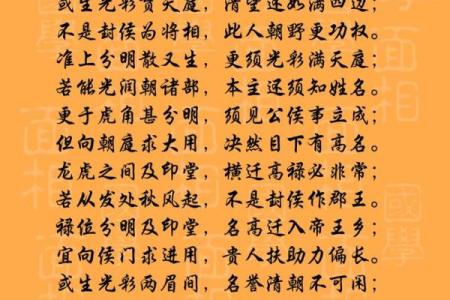 或生光彩贯天庭，清望还须满四边；
不是封侯为将相，此人朝野更功权。
准上分明散又生，更须光彩满天庭；
若能光润朝诸部，本主还须知姓名。
更于虎角甚分明，须见公侯事立成；
但向朝庭求大用，决然目下有高名。
龙虎之间及印堂，横迁高禄必非常；
若从发处秋风起，不是封侯作郡王。
禄位分明及印堂，名高迁入帝王乡；
宜向侯门求进用，贵人扶助力偏长。
或生光彩两眉间，名誉清朝不可闲；
面相
國學